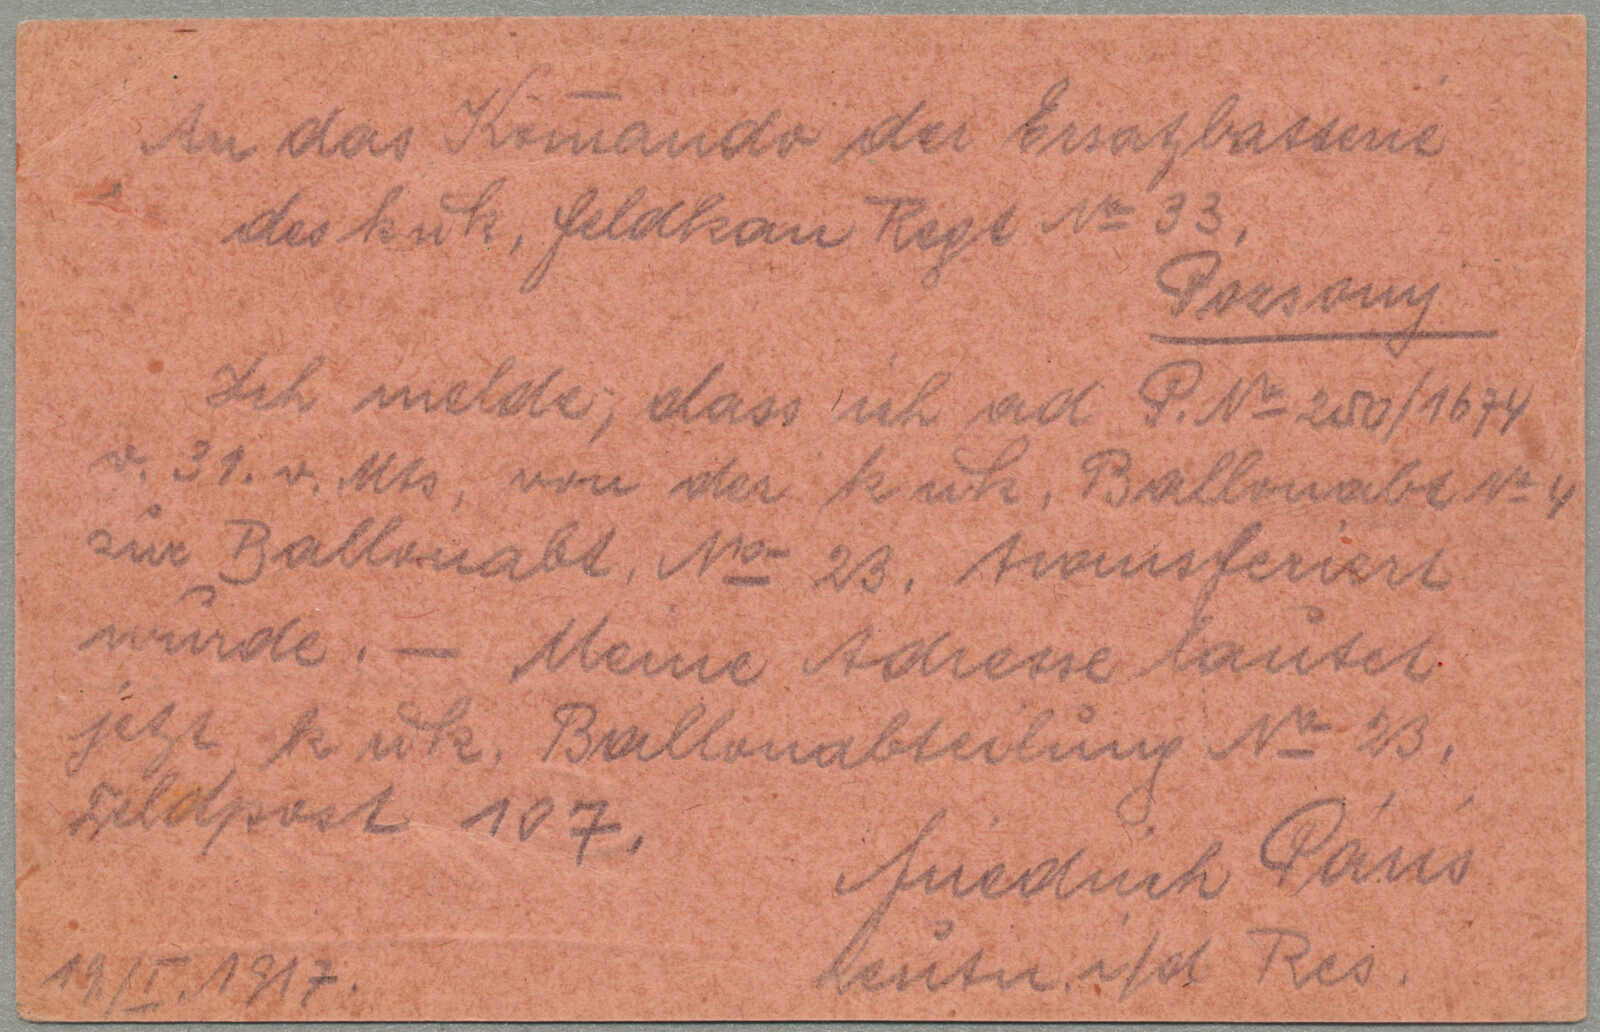 An das Kom̄ando der Ersatzbatterie
des k u k. Feldkan Regt Nr 33.
Pozsony
Ich melde, dass ich ad P. Nr 250/1674
v. 31. v. Mts, von der k u k. Ballonabt Nr 4
zur Ballonabt. Nro 23. transferiert
wurde. — Meine Adresse lautet
jetzt k u k. Ballonabteilung Nr 23.
Feldpost 107.
Friedrich Páris
Leutn. i/d Res.
19./II. 1917.